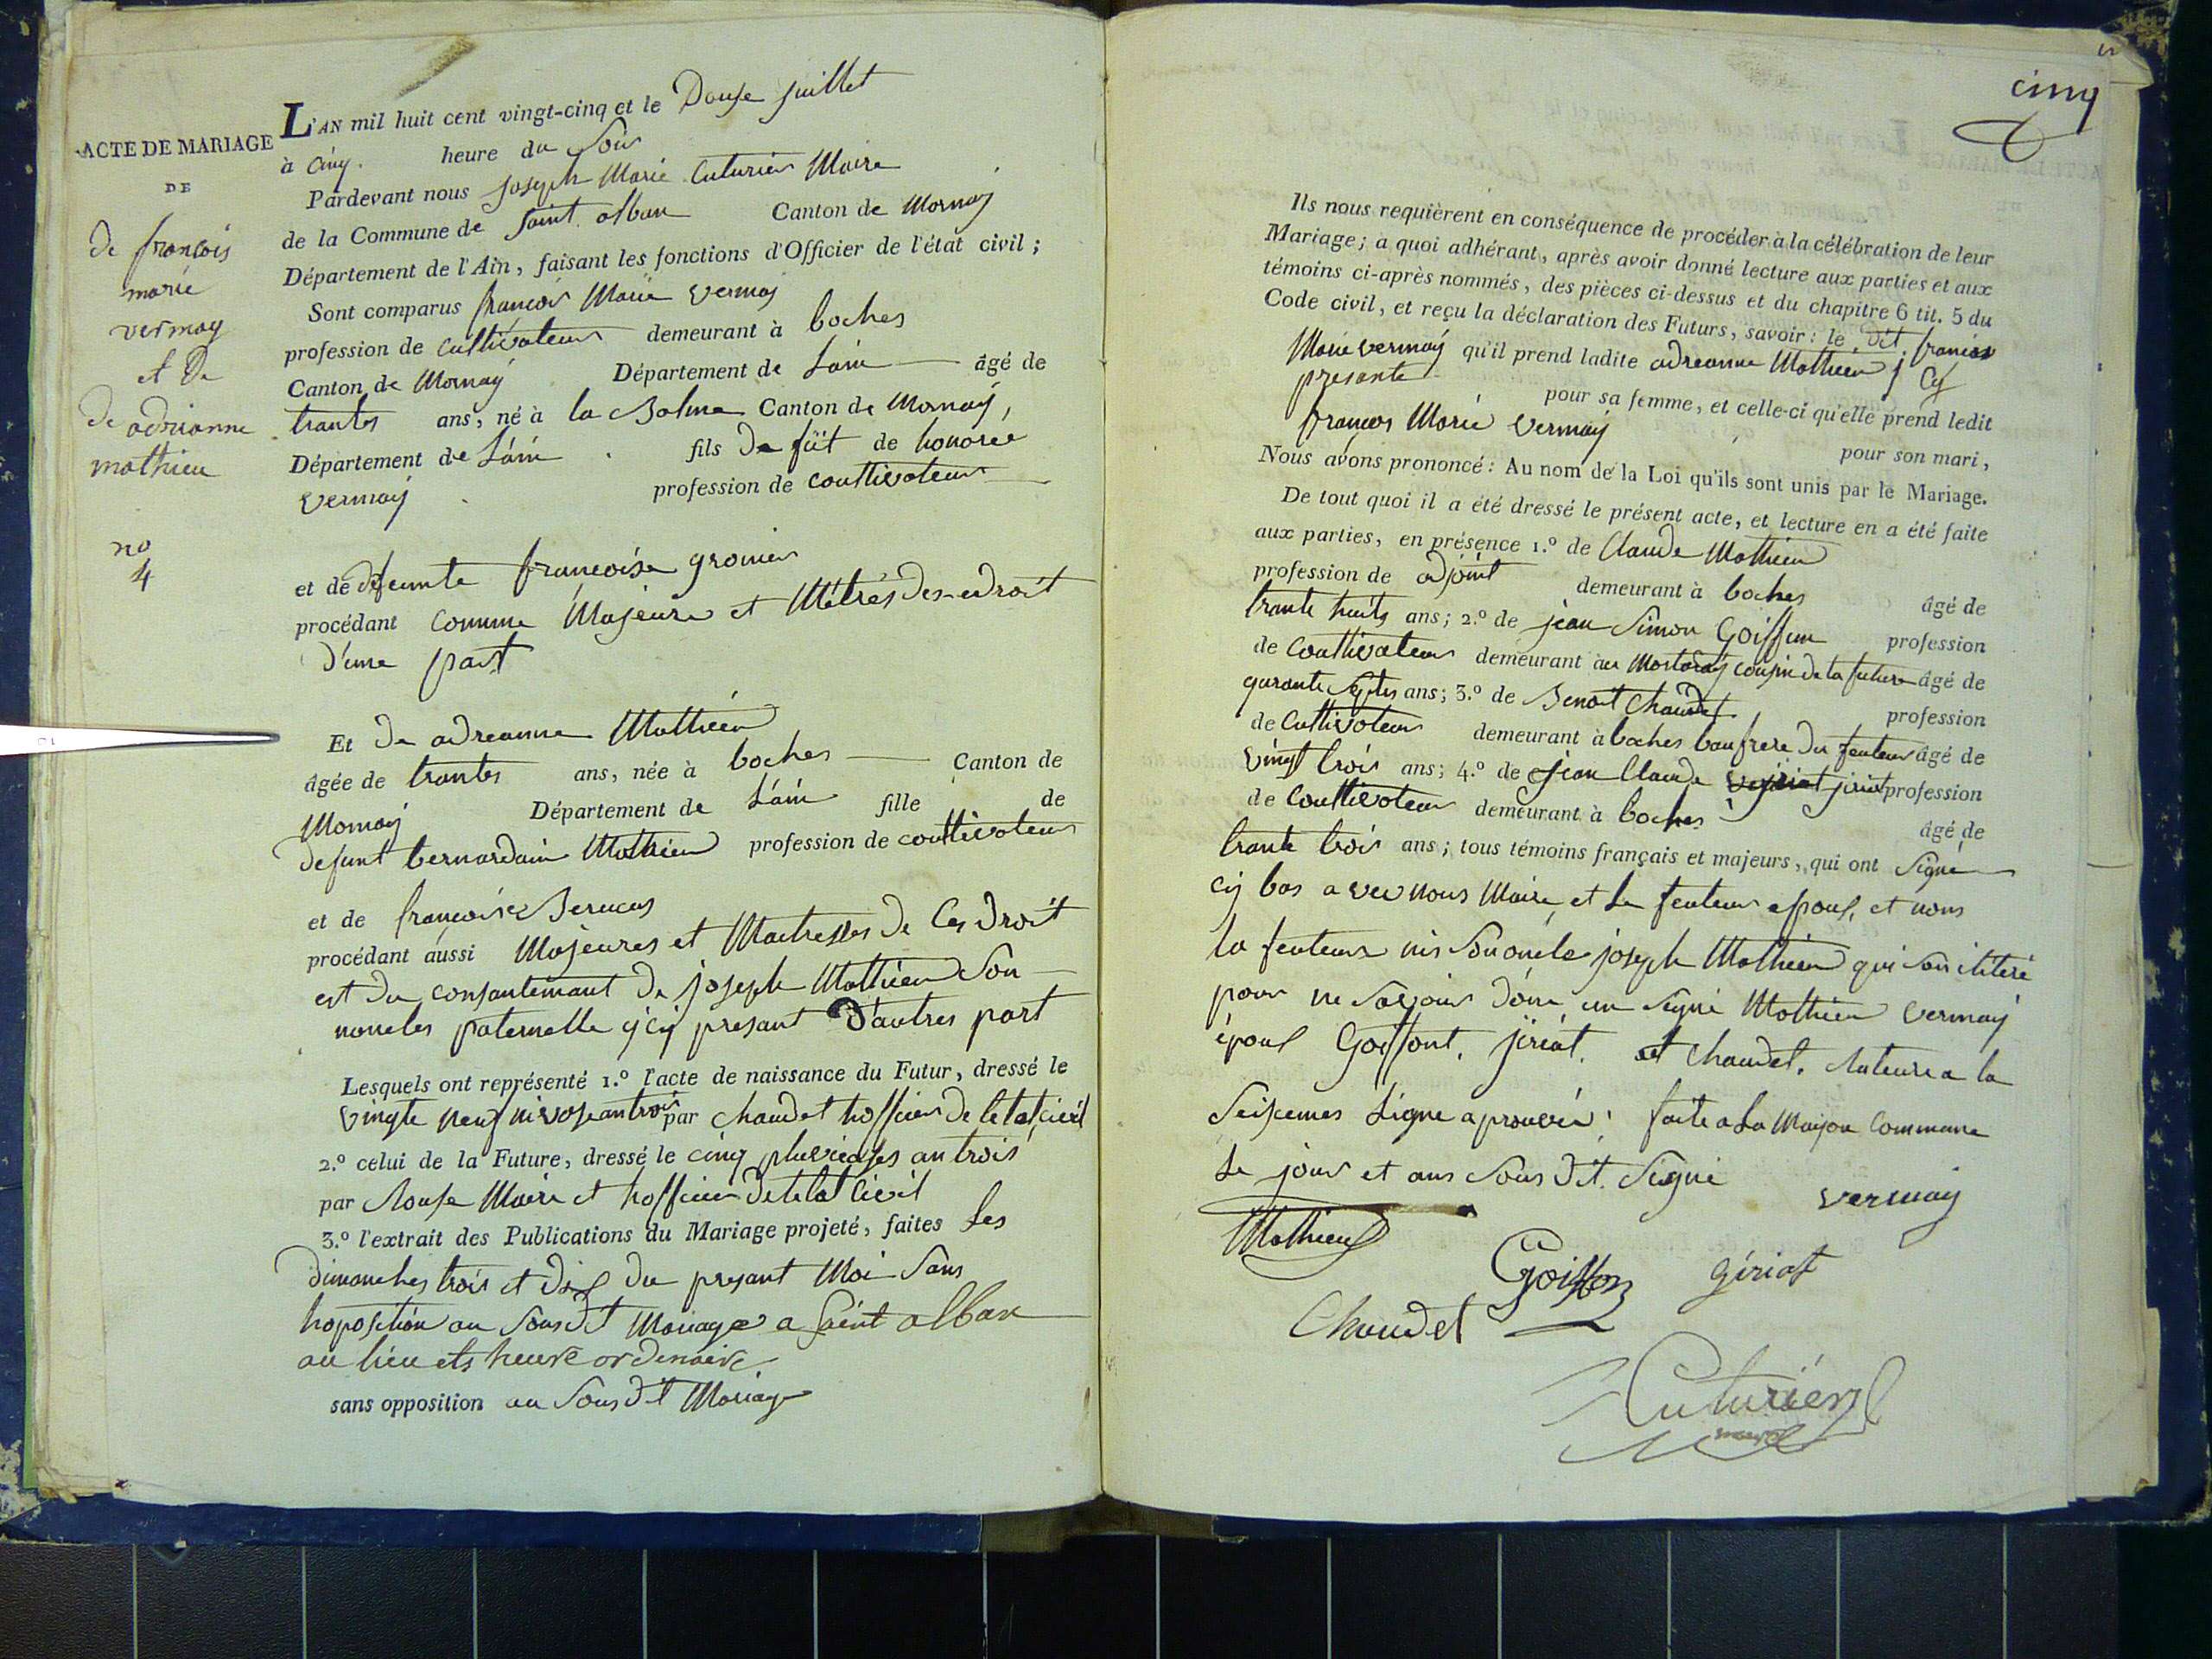 ACTE DE MARIAGE
DE
de francois
marie
vermay
et De
De adrianne
mathieu
no
4
L'AN mil huit cent vingt-cinq et le Douse juillet
à Cinq. heure du Soir
Pardevant nous joseph Marie Cuturier Maire
de la Commune de Saint alban Canton de Mornay
Département de l'Ain, faisant les fonctions d'Officier de l'état civil;
Sont comparus francois Marie Vermay
profession de Cultivateur demeurant à boches
Canton de Mornay Département de Lain âgé de
trantes ans, né à la Balme Canton de Mornay,
Département de L'ain fils De füt de honoree
vermay profession de coultivateur
et de defeunte francoise gronier
procédant comme Majeure et Métres des-cdroit
D'une part
Et De adreanne Mathieu
âgée de trantes ans, née à boches Canton de
Mornay Département de L'ain fille de
defunt bernardain Mathieu profession de coultivateur
et de francoise Berucus
procédant aussi Majeures et Maitresses De Ces Droit
est Du consantemant De joseph Mathieu Son
noncles paternelle y'cy presant D'autres part
Lesquels ont représenté 1.° l'acte de naissance du Futur, dressé le
vingte neuf nivose an trois par chaudet hofficier de letat civil
2.° celui de la Future, dressé le cinq pluvieoses an trois
par Maire et hofficier De letat Civil
3.° l'extrait des Publications du Mariage projeté, faites Les
Dimanches trois et Dix Du presant Moi Sans
hoposition au Sous Dt Mariage a Saint alban
au lieu ets heure ordenaire
sans opposition au Sous Dit Mariage
cinq
Ils nous requièrent en conséquence de procéder à la célébration de leur
Mariage; à quoi adhérant, après avoir donné lecture aux parties et aux
témoins ci-après nommés, des pièces ci-dessus et du chapitre 6 tit. 5 du
Code civil, et reçu la déclaration des Futurs, savoir: le Dit francois
Marie vermay qu'il prend ladite adreanne Mathieu j Cy
presante pour sa femme, et celle-ci qu'elle prend ledit
francois Marie Vermay pour son mari,
Nous avons prononcé: Au nom de la Loi qu'ils sont unis par le Mariage.
De tout quoi il a été dressé le présent acte, et lecture en a été faite
aux parties, en présence 1.° de Claude Mathieu
profession de adjoint demeurant à boches âgé de
trante huits ans; 2.° de jean Simon Goiffon profession
de Coultivateur demeurant au Mortaray cousin de la future âgé de
quarante Septes ans; 3.° de Benoit Chaudet profession
de Cultivateur demeurant à boches baufrere Du feuteur âgé de
vingt trois ans; 4.° de jean Claude jiriat profession
de Coultivateur demeurant à boches âgé de
trante trois ans; tous témoins français et majeurs, qui ont Signé
cy bas avec nous Maire, et Le feuteur epoux, et nons
la feuteure nis Son oncle joseph Mathieu qui Son ilitere
pour ne Savoir Done un Signé Mathieu Vermay
époux Goiffont. jiriat. et chaudet. Rateure a la
Seisiemes Ligne aprouvée; faite a La Maison Commune
Le jour et ans Sous Dit. Signé
vermay
Mathieu
Goiffon
Giriat
Chaudet
Cuturier
maire